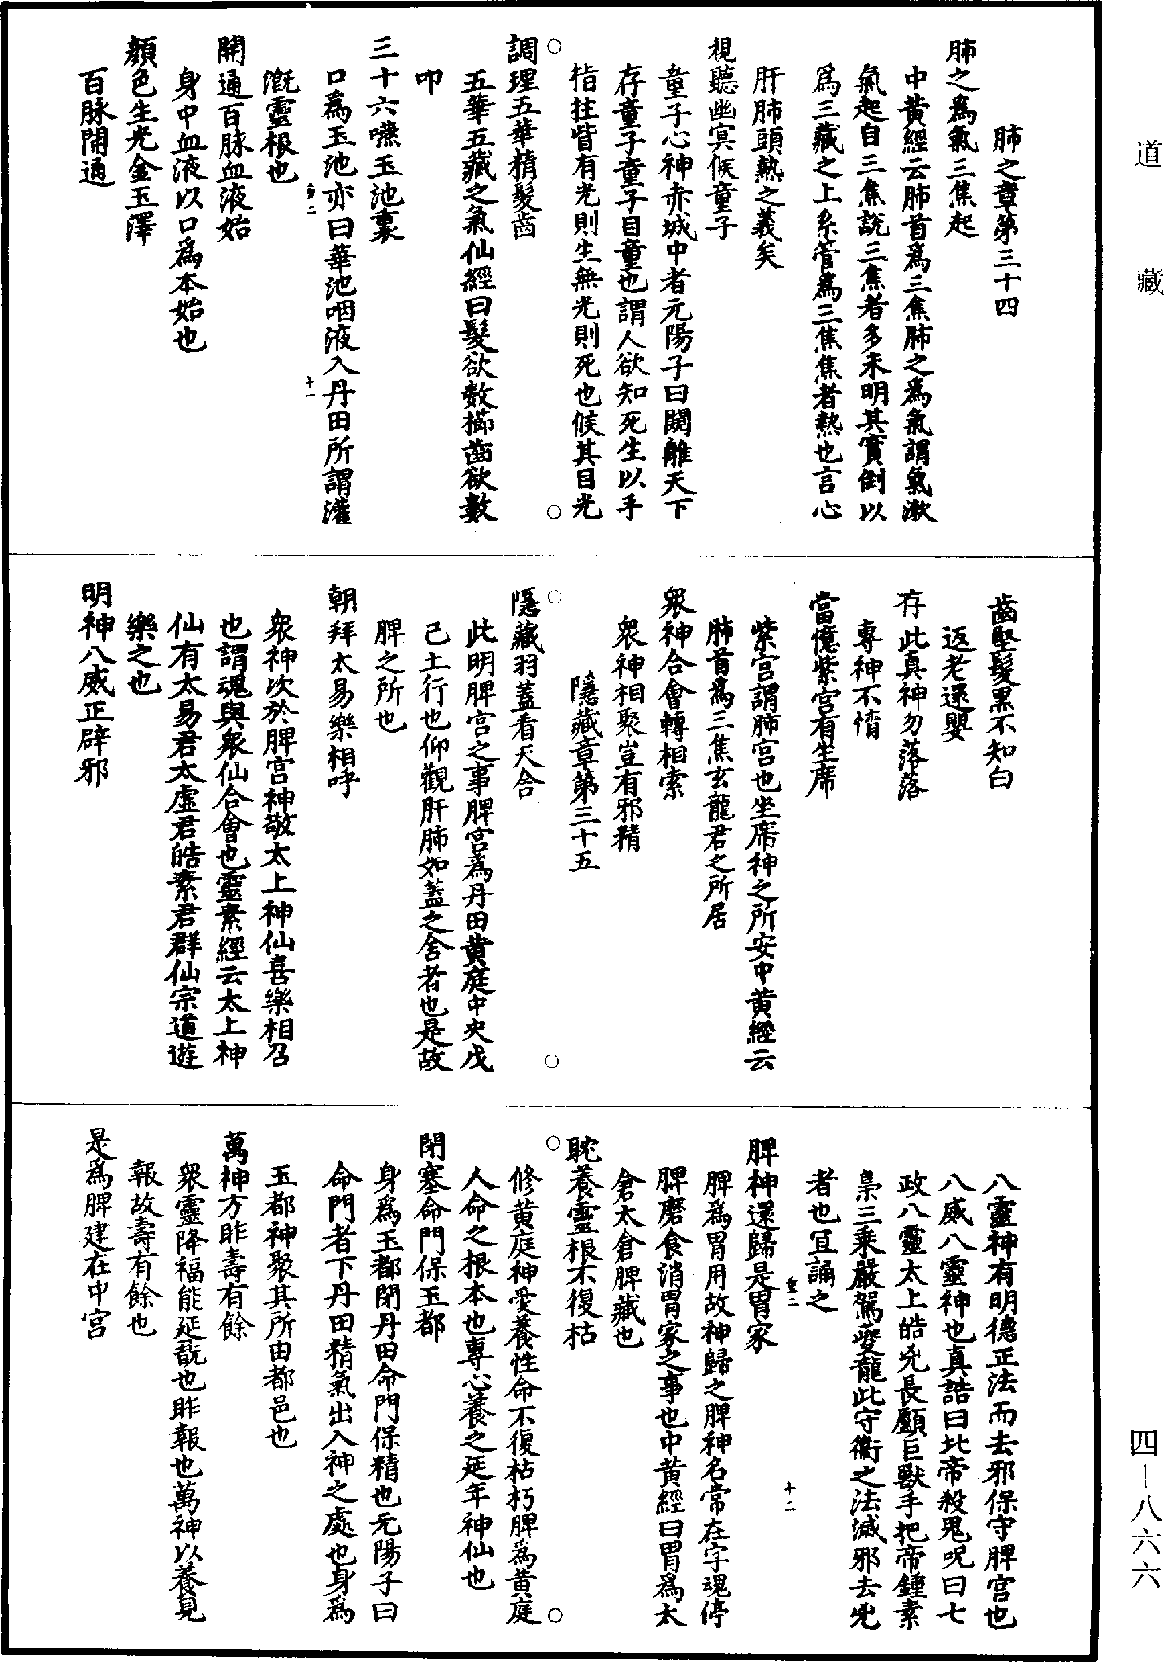 道藏
肺之章第三十四
肺之為氣三焦起
中黃經云肺首為三焦肺之為氣謂氣漱
氣起自三焦說三焦者多未明其實倒以
為三藏之上系管為三焦焦者熱也言心
肝肺頭熱之義矣
視聽幽冥候童子
童子心神赤城中者元陽子曰閉離天下
存童子童子目童也謂人欲知死生以手
指拄眥有光則生無光則死也候其目光
調理五華精髮齒
五華五藏之氣仙經曰髮欲數櫛齒欲數
叩
三十六嚥玉池裏
口為玉池亦曰華池咽液入丹田所謂灌
溉靈根也
開通百脉血液始
身中血液以口為本始也
顏色生光金玉澤
百脉開通
齒堅髮黑不知白
返老還嬰
存此真神勿落落
專神不惰
當憶紫宮有坐席
紫宮謂肺宮也坐席神之所安中黃經云
肺首為三焦玄龍君之所居
衆神合會轉相索
衆神相聚豈有邪精
隱藏章第三十五
隱藏羽蓋看天舍
此明脾宮之事脾宮為丹田黃庭中央戊
己土行也仰觀肝肺如蓋之舍者也是故
脾之所也
朝拜太易樂相呼
衆神次於脾宮神敬太上神仙喜樂相召
也謂魂與衆仙合會也靈素經云太上神
仙有太易君太虛君皓素君群仙宗道遊
樂之也
明神八威正辟邪
八靈神有明德正法而去邪保守脾宮也
八威八靈神也真誥曰北帝殺鬼呪曰七
政八靈太上皓兇長顱巨獸手把帝鍾素
梟三乘嚴駕夔龍此守衛之法滅邪去兇
者也宜誦之
脾神還歸是胃家
脾為胃用故神歸之脾神名常在字魂停
脾磨食消胃家之事也中黃經曰胃為太
倉太倉脾藏也
耽養靈根不復枯
修黃庭神愛養性命不復枯朽脾為黃庭
人命之根本也專心養之延年神仙也
閉塞命門保玉都
身為玉都閉丹田命門保精也元陽子曰
命門者下丹田精氣出入神之處也身為
玉都神聚其所由都邑也
萬神方昨壽有餘
衆靈降福能延翫也昨報也萬神以養見
報故壽有餘也
是為脾建在中宮
四—八六六